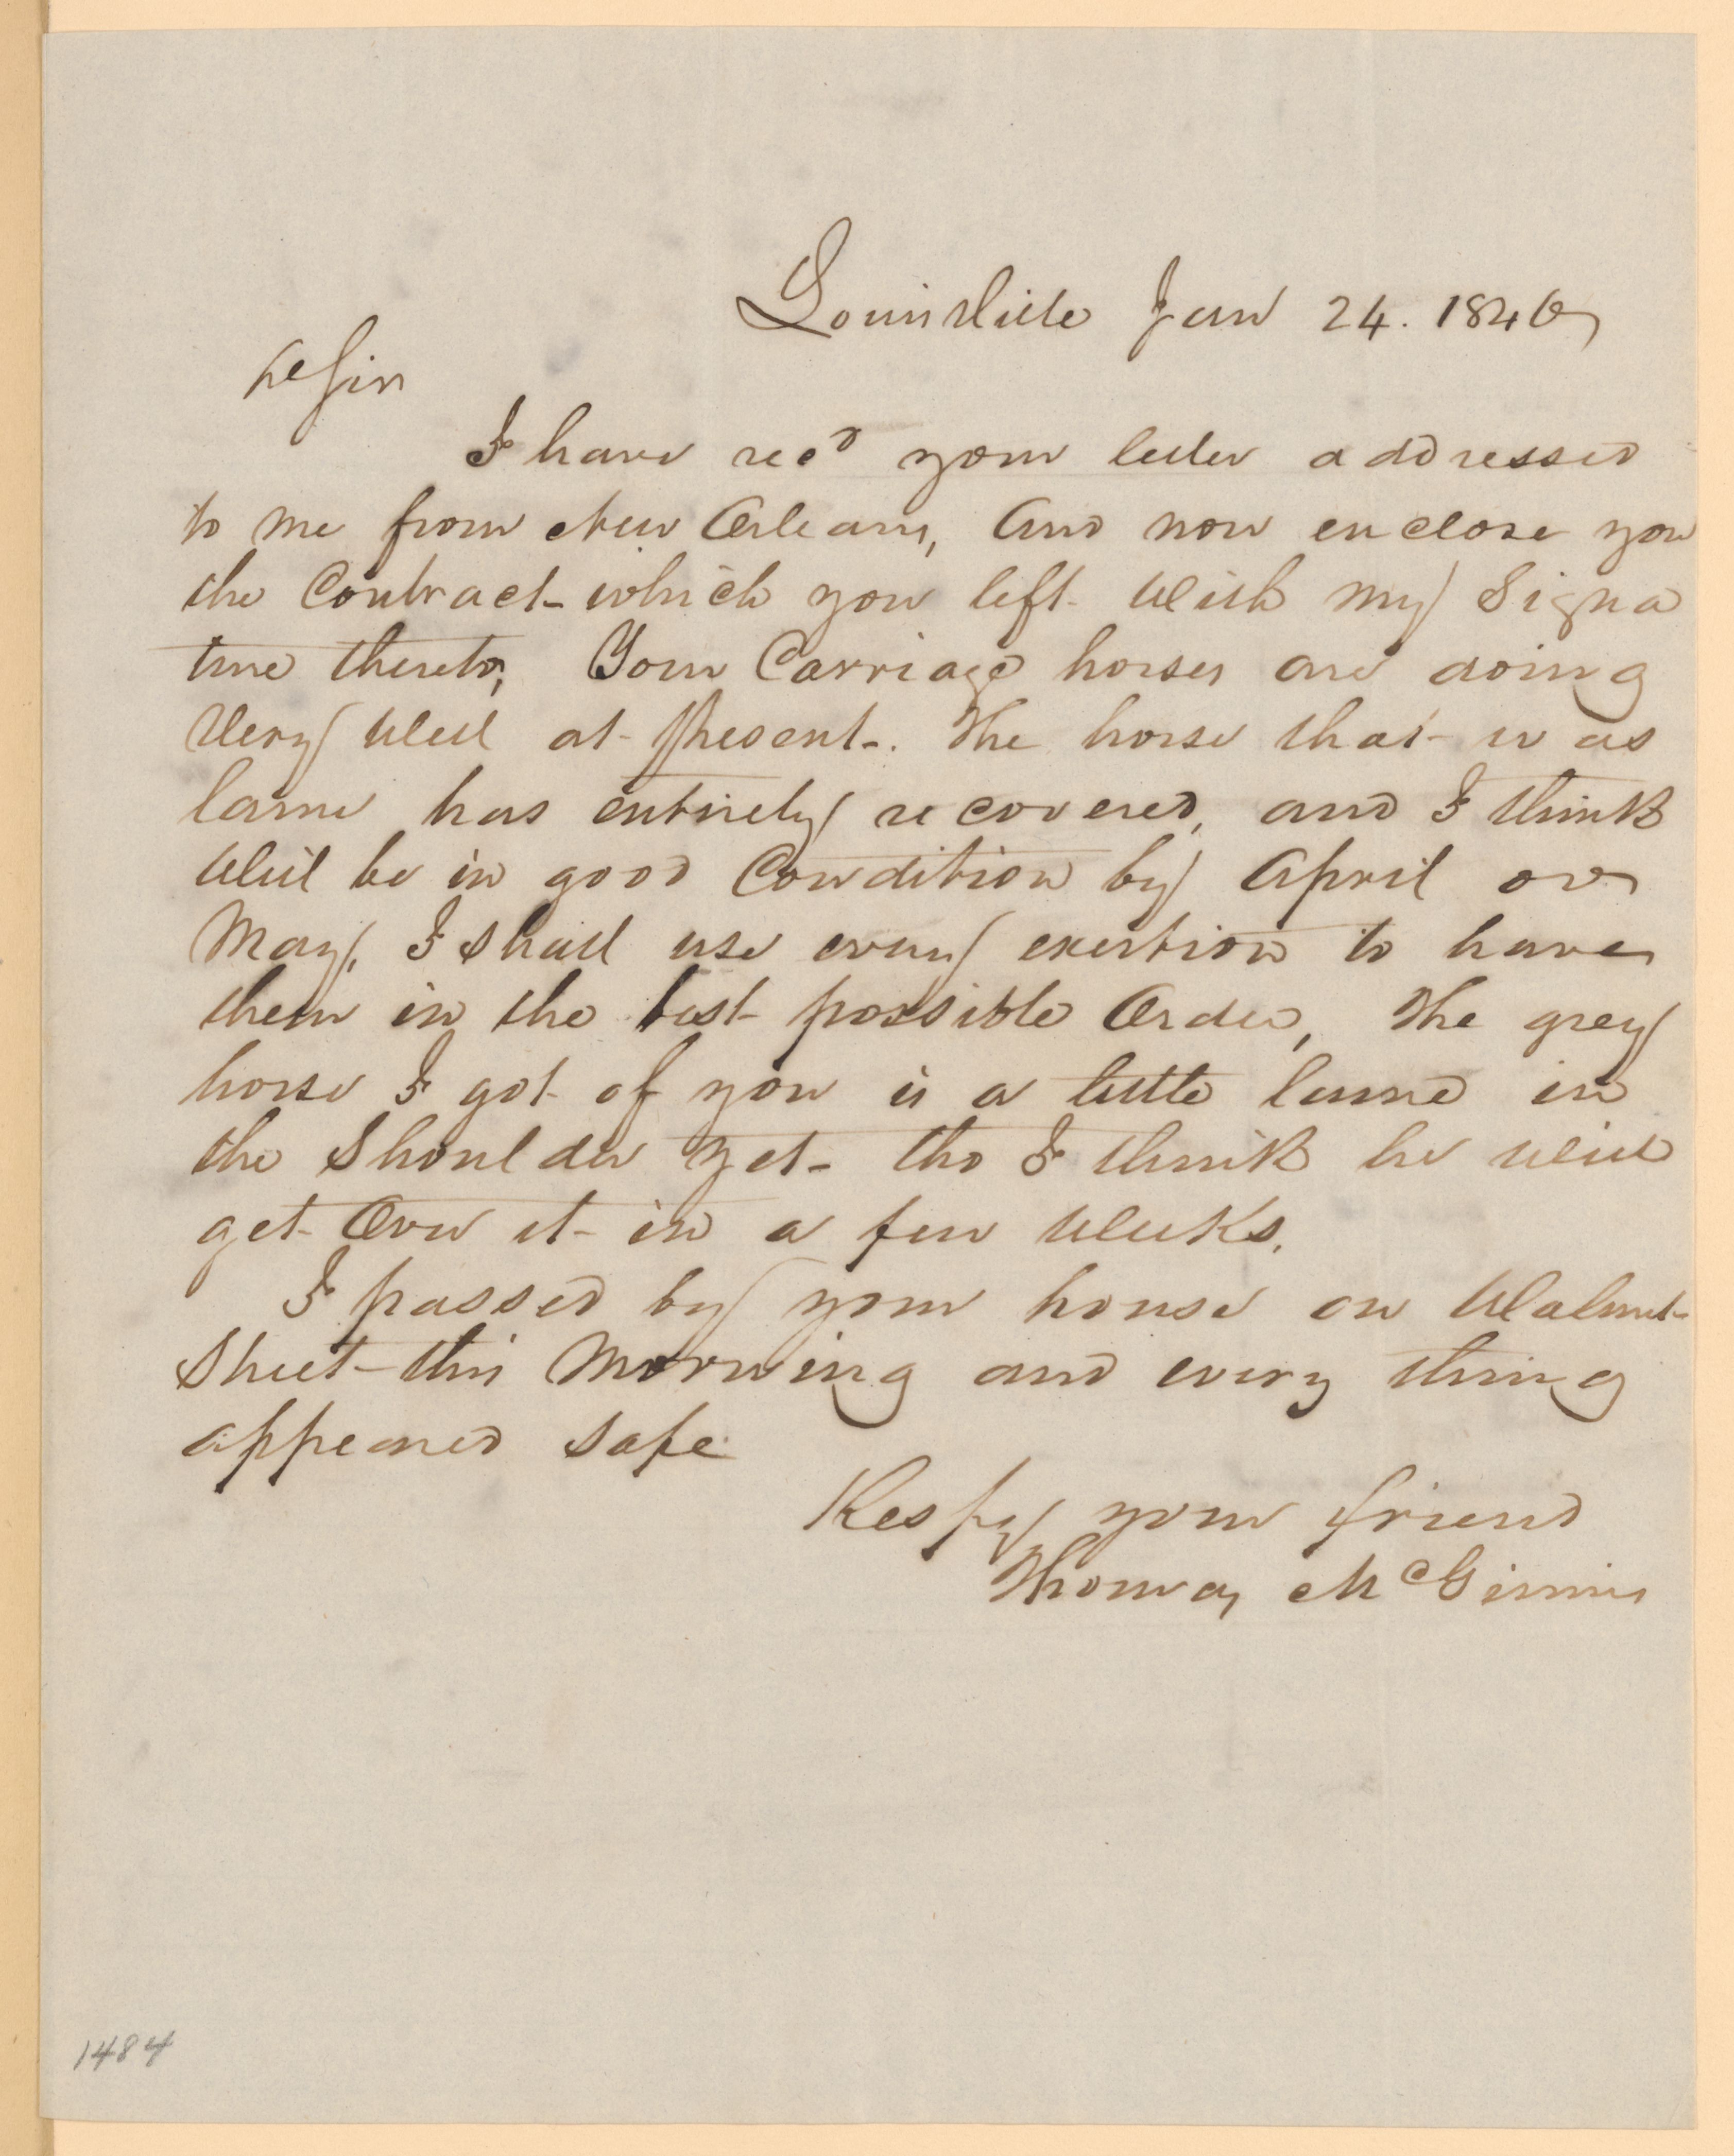 Louisville Jan 24. 1846
Dr Sir
I have recd your letter addressed
to me from New Orleans, And now enclose you
the Contract which you left with my Signa
ture thereto, Your Carriage horses are doing
Very Well at present. The horse that was
lame has entirely recovered, and I think
Will be in good Condition by April or
May, I shall use every exertion to have
them in the best possible Order, The grey
horse I got of you is a little lame in
the Shoulder yet - tho I think he will
get Over it in a few Weeks.
I passed by your house on Walnut
Street this Morning and every thing
appeared safe
Respy your friend
Thomas McGinnis
1484